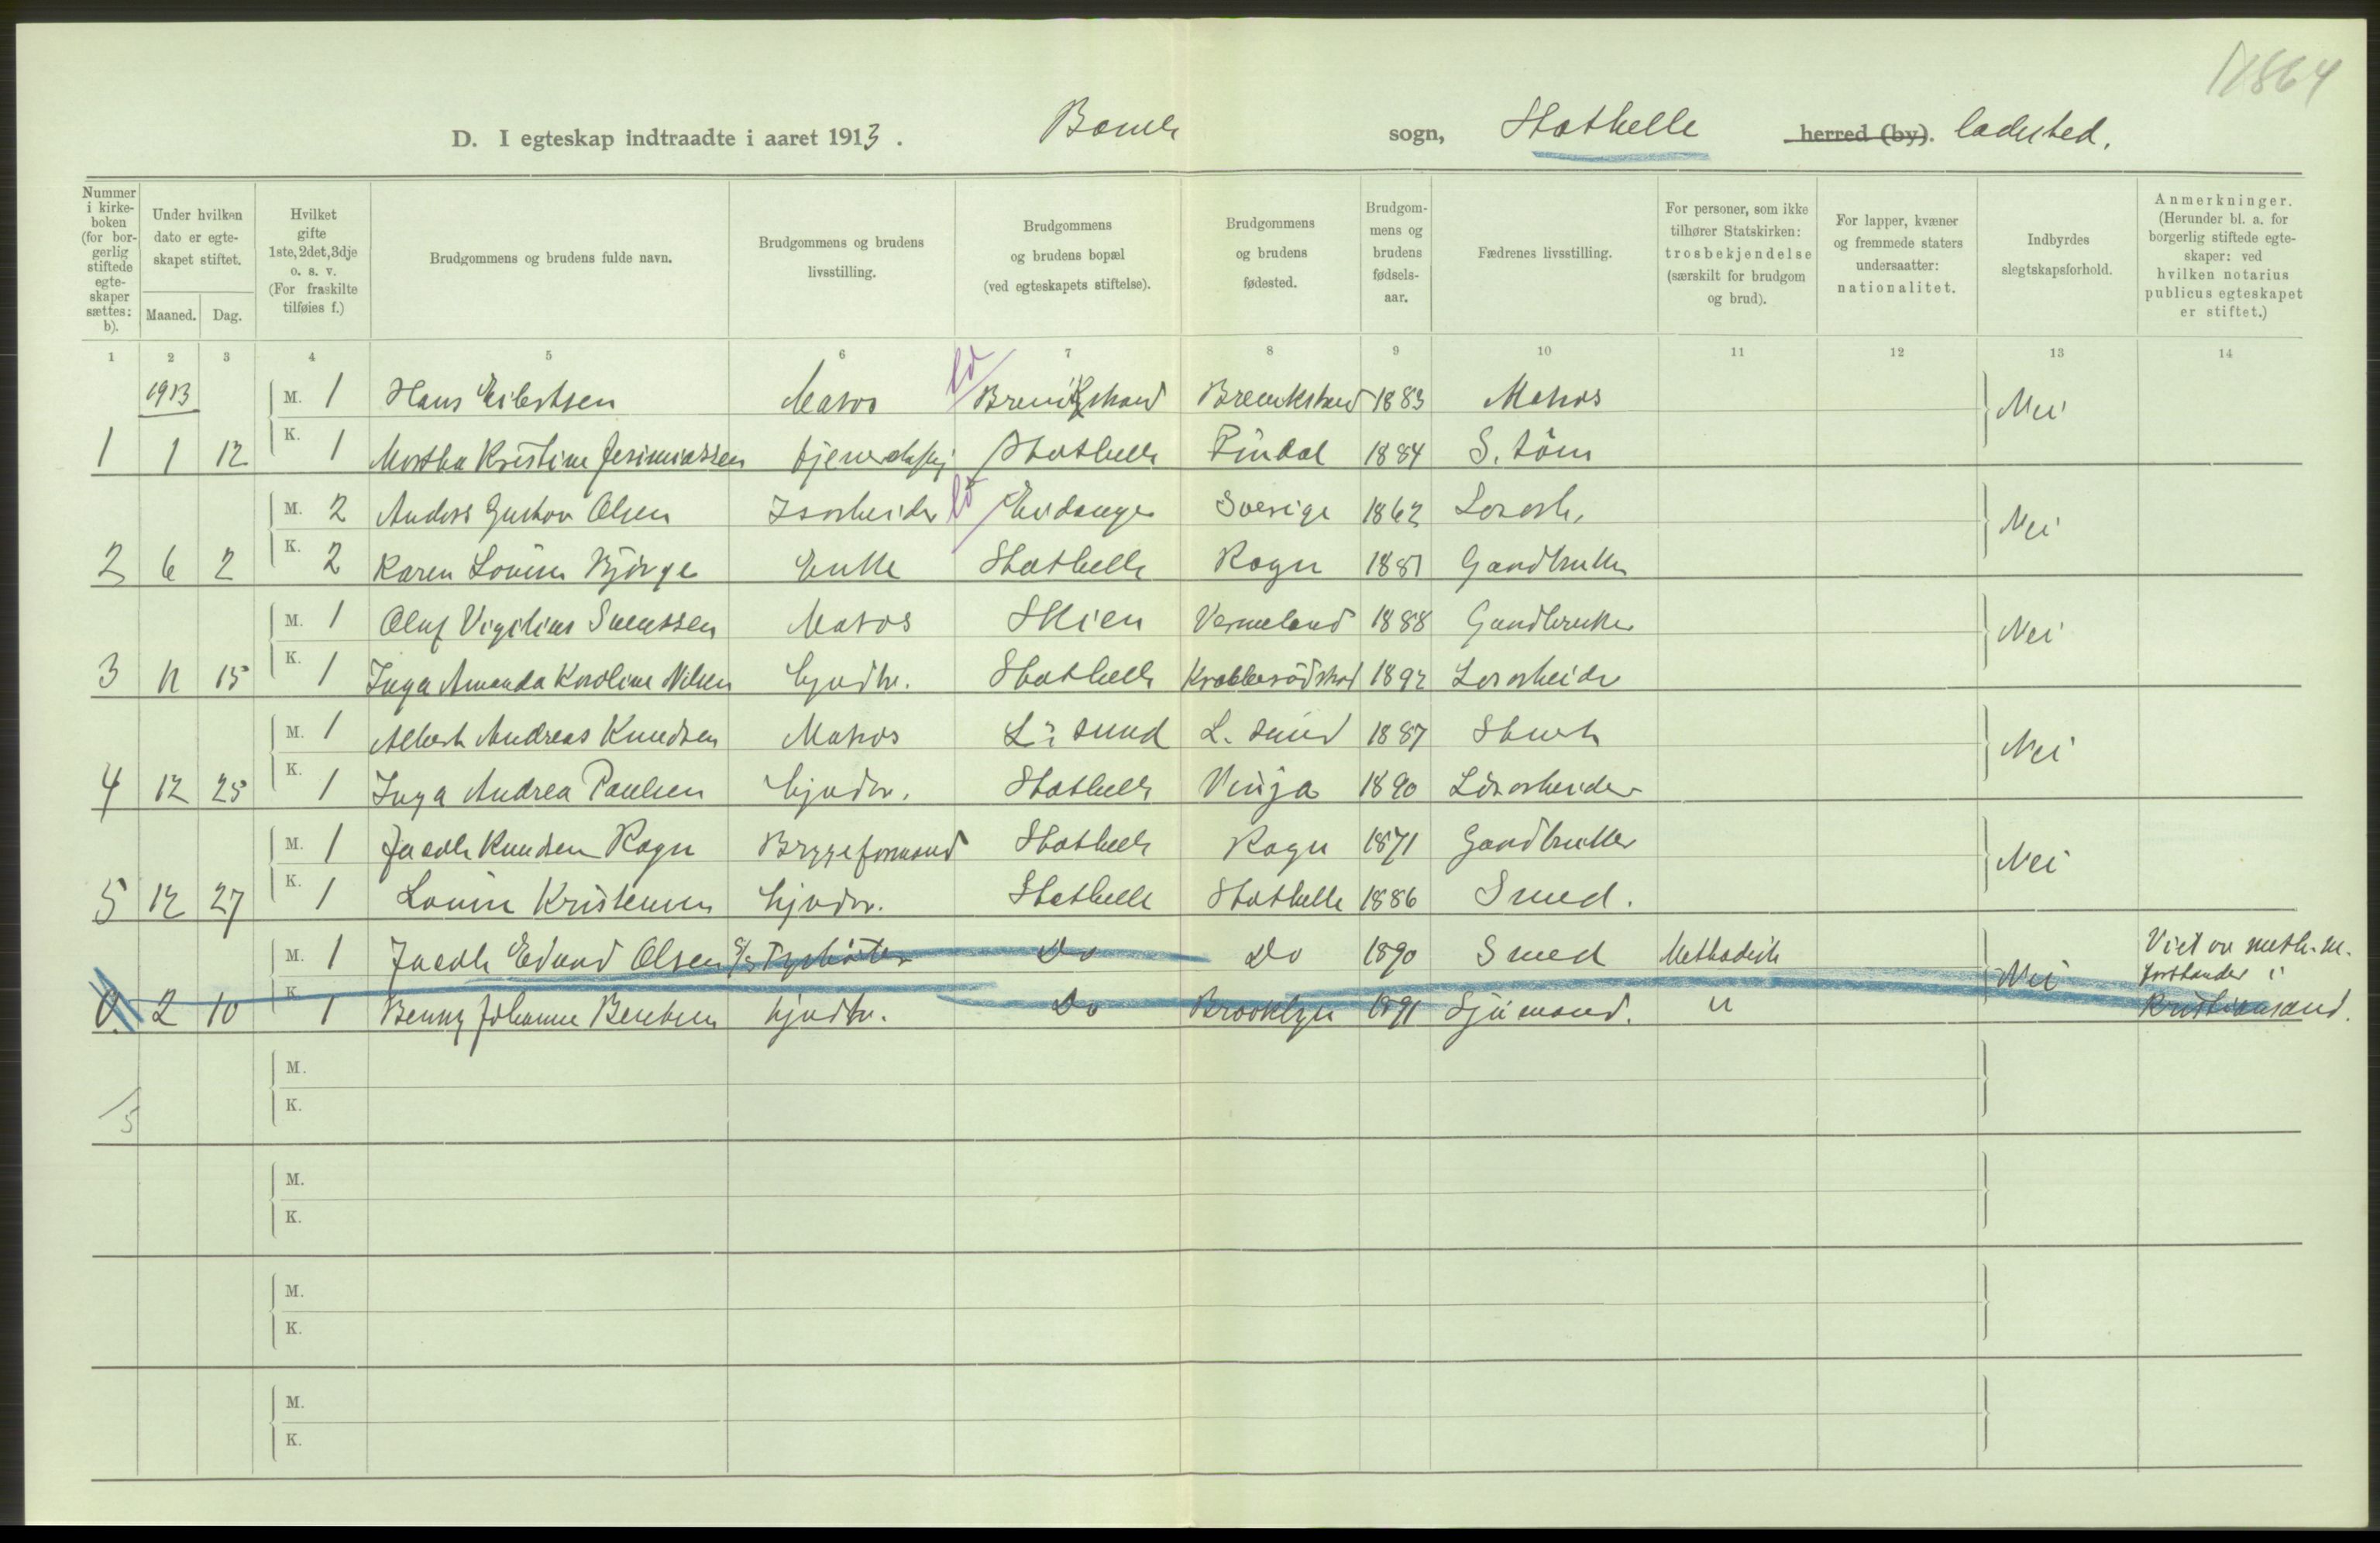 11864
D. I egteskap indtraadte i aaret 1913. Bamle sogn, Stathelle herred (by). ladested.
Nummer i kirkeboken (for borgerlig stiftede egteskaper sættes: b).
Under hvilken dato er egteskapet stiftet.
Maaned. Dag.
Hvilket gifte 1ste, 2det, 3dje o. s. v. (For fraskilte tilføies f.)
Brudgommens og brudens fulde navn.
Brudgommens og brudens livsstilling.
Brudgommens og brudens bopæl (ved egteskapets stiftelse).
Brudgommens og brudens fødested.
Brudgommens og brudens fødselsaar.
Fædrenes livsstilling.
For personer, som ikke tilhører Statskirken: trosbekjendelse (særskilt for brudgom og brud).
For lapper, kvæner og fremmede staters undersaatter: nationalitet.
Indbyrdes slegtskapsforhold.
Anmerkninger. (Herunder bl. a. for borgerlig stiftede egteskaper: ved hvilken notarius publicus egteskapet er stiftet.)
1 2 3 4 5 6 7 8 9 10 11 12 13 14
1913 M. 1 Hans Eilertsen Matros 1883 Matros Nei
1 1 12 K. 1 Martha Kristine Jerimiassen Stathelle 1884
M. 2 Anders Gustav Olsen Isarbeider Eidanger Sverige 1862 Nei
2 6 2 K. 2 Karen Lovise Bjørge Enke Stathelle Rogn 1881 Gaardbruker
M. 1 Oluf Matros Skien Vermeland 1888 Gaardbruker Nei
3 11 15 K. 1 Inga Amanda Karoline Nilsen Hjndtr. Stathelle 1892 Løsarbeider
M. 1 Albert Andreas Knudsen Matros L. sund L. sund 1887 Nei
4 12 25 K. 1 Inga Andrea Paulsen Hjndtr. Stathelle Vinja 1890 Løsarbeider
M. 1 Jacob Knudsen Rogn Bryggeformand Stathelle Rogn 1871 Gaardbruker Nei
5 12 27 K. 1 Lovise Kristensen Hjndtr. Stathelle Stathelle 1886 Smed.
M. 1 Jacob Edvard Olsen Do Do 1890 Smed Methodist Nei Viet av meth. m. forstander i
0. 2 10 K. 1 Benny Johanne Bentsen Hjndtr. Do Brooklyn 1891 Sjømand. " Kristiansand.
M.
5
K.
M.
K.
M.
K.
M.
K.